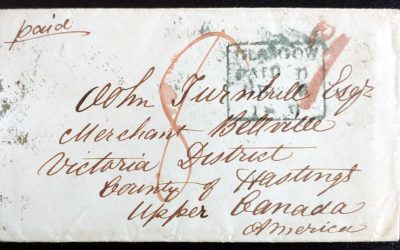 paid
GLASGOW
PAID
8
John Turnbull Esqr
Merchant Bellville
Victoria District
County of Hastings
Upper Canada
America